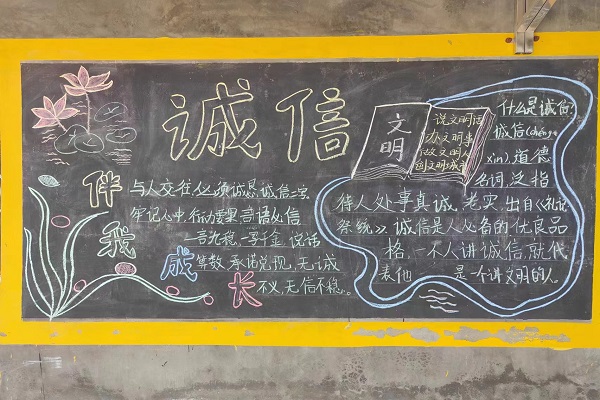 诚信
伴我成长
与人交往必须诚恳,诚信二字
牢记心中,行动要里言语必信
一言九鼎,一字千金,说话
算数,承诺兑现,无诚
不义,无信不稳。
文明
说文明话
办文明事
做文明人
创文明城市
什么是诚信?
诚信(chéng
xìn),道德
名词,泛指
待人处事真诚、老实,出自《礼记
祭统》,诚信是人必备的优良品
格,一个人讲诚信,就代
表他 是一个讲文明的人。